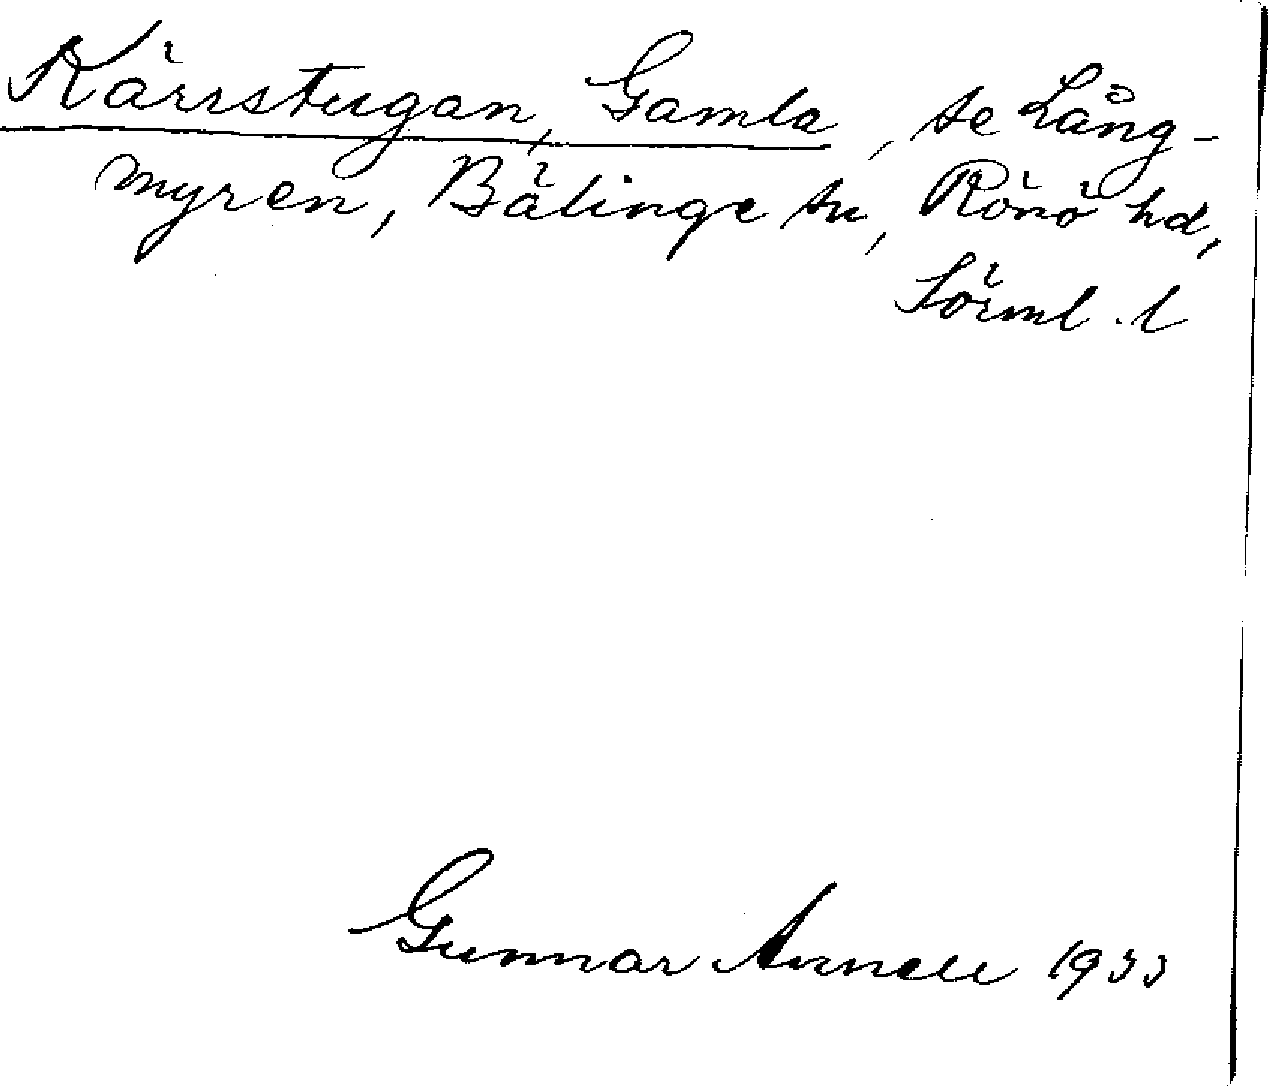 Kärrstugan, Gamla, se Lång-
myren, Bälinge sn, Rönö hd,
Sörml. l
Gunnar Arnell 1933